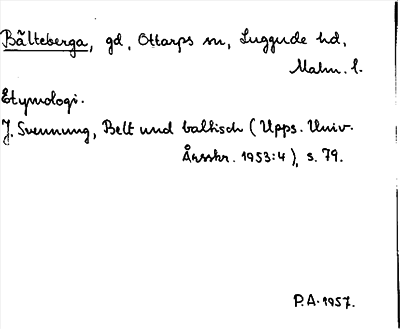 Bälteberga, gd, Ottarps sn, Luggude hd,
Malm. l.
Etymologi.
J. Svennung, Belt und baltisch (Upps. Univ.
Årsskr. 1953:4), s. 79.
P.A. 1957.